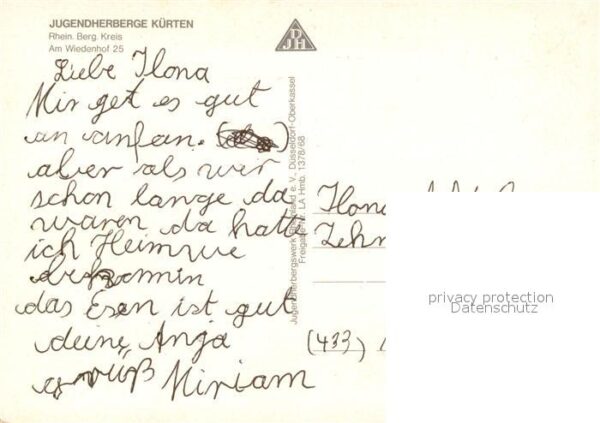 JUGENDHERBERGE KÜRTEN
Rhein. Berg. Kreis
Am Wiedenhof 25
DJH
Liebe Ilona
Mir get es gut
an anfan.
aber als wir
schon lange da
waren da hatte
ich Heimwe
bekommin
das Esen ist gut
deine Anja
gruß Miriam
Jugendherbergswerk Rheinland e. V., Düsseldorf-Oberkassel
Freigabe Nr. LA Hmb. 1378/68
Ilona
Zehn
(433)
privacy protection
Datenschutz